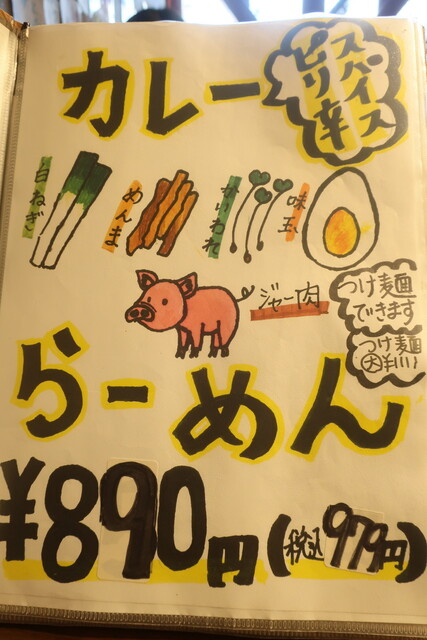 カレー
スパイス
ピリ辛
白ねぎ
めんま
かいわれ
味玉
ジャー肉
つけ麺
できます
つけ麺
大¥111
らーめん
¥890円(税込979円)